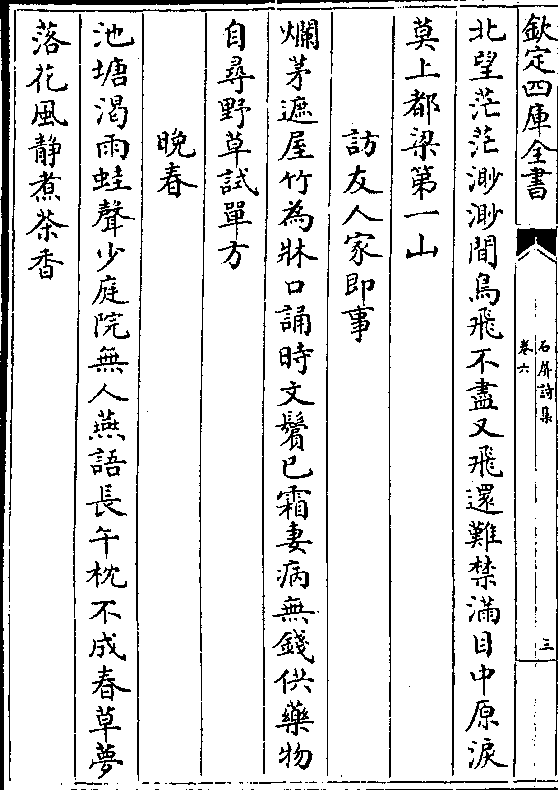 欽定四庫全書
石屏詩集
卷六
三
北望茫茫渺渺間鳥飛不盡又飛還難禁滿目中原淚
莫上都梁第一山
訪友人家即事
爛茅遮屋竹為牀口誦時文鬢已霜妻病無錢供藥物
自尋野草試單方
晚春
池塘渴雨蛙聲少庭院無人燕語長午枕不成春草夢
落花風静煮茶香